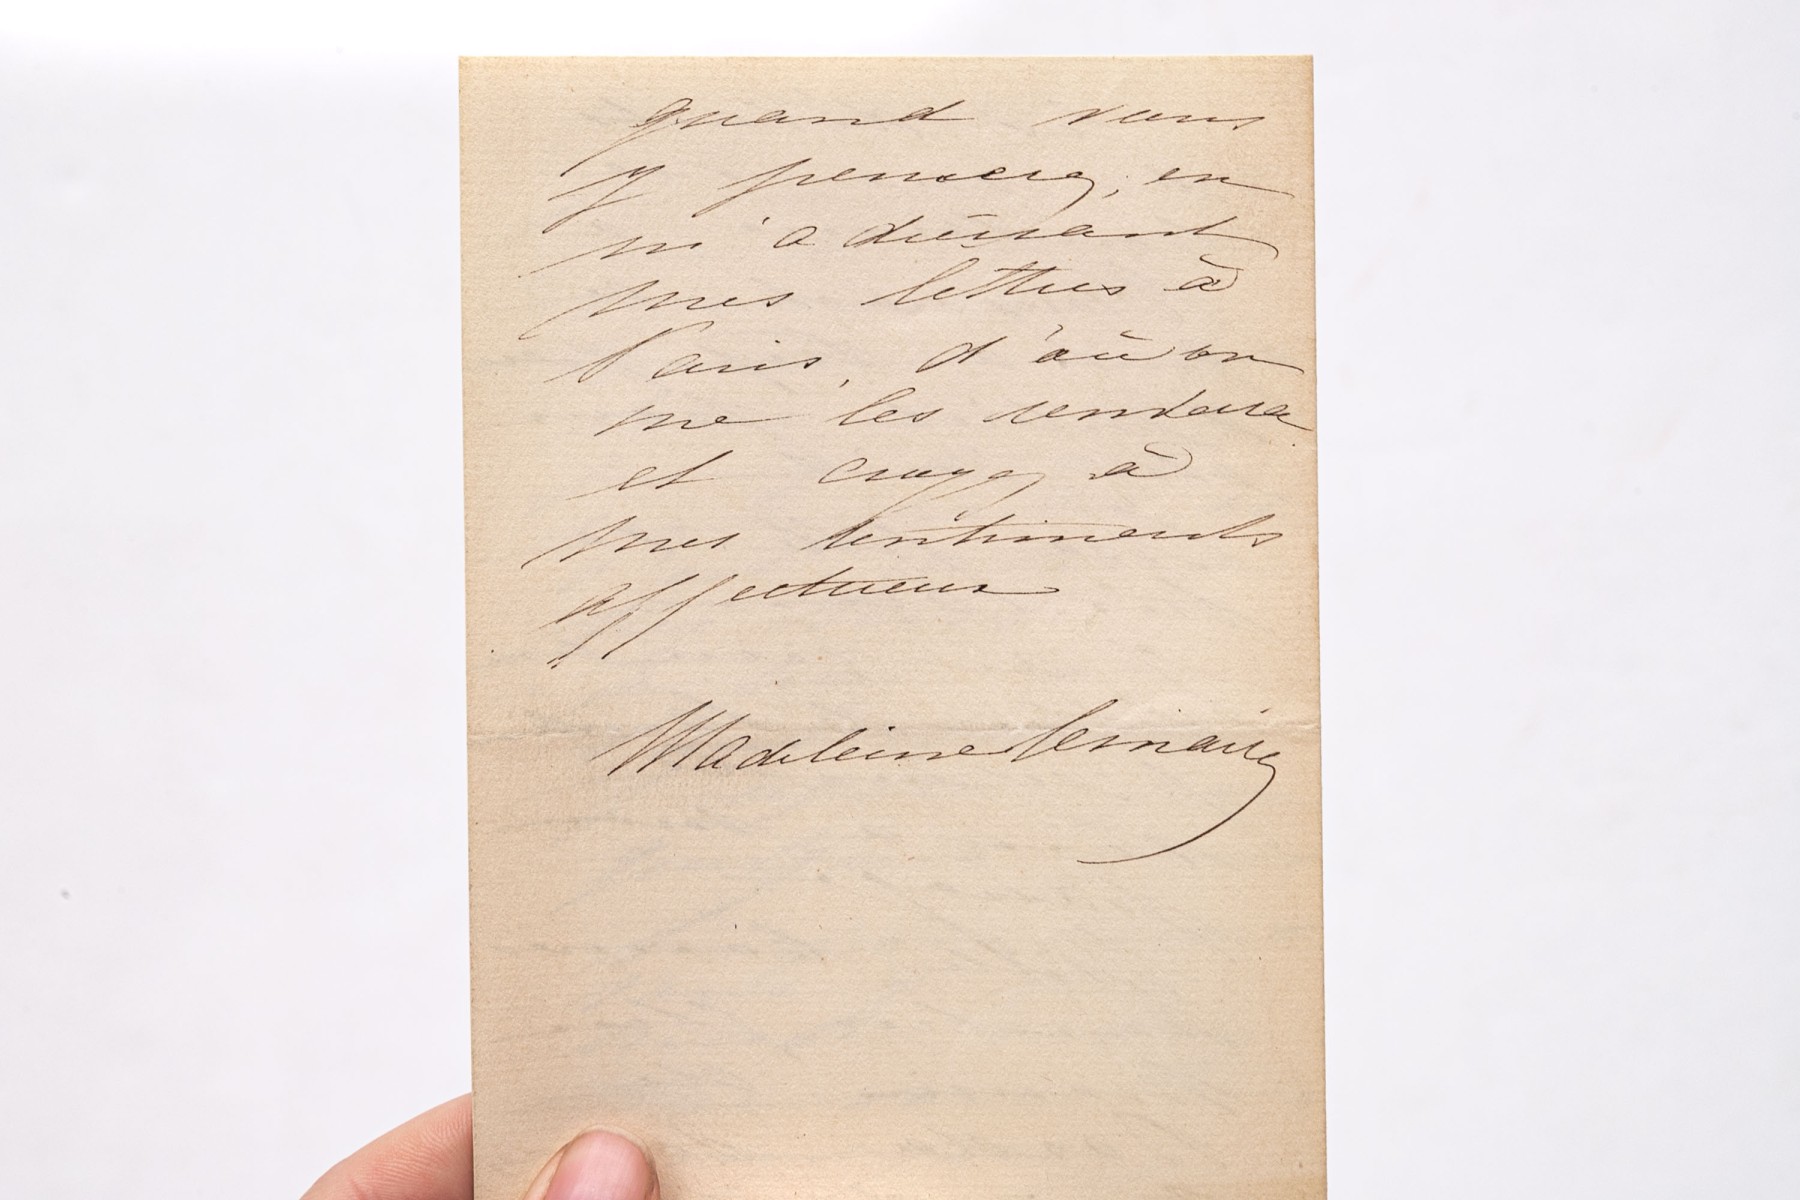 quand vous
y penserez, en
m'adressant
mes lettres à
Paris, d'où on
me les renverra
et croyez à
mes sentiments
affectueux
Madeleine Lemaire